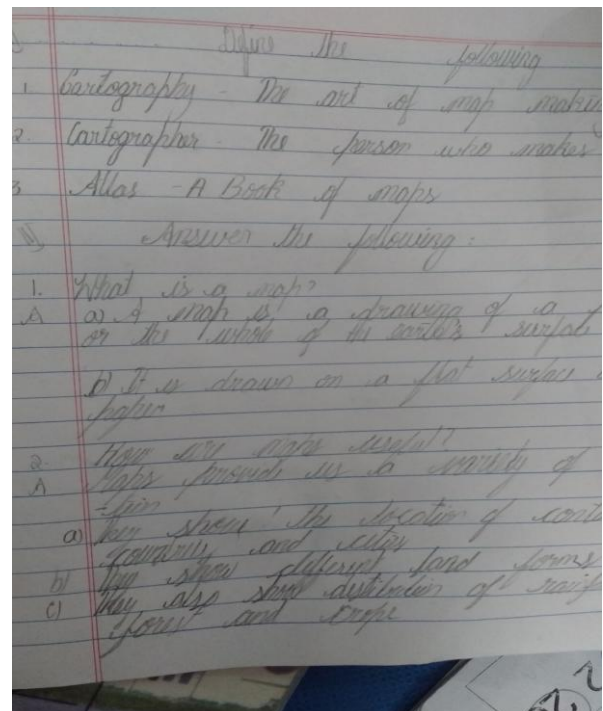 Define the following
1. Cartography - The art of map making
2. Cartographer - The person who makes
3 Atlas - A Book of maps
II Answer the following :
1. What is a map?
A a) A map is a drawing of a
or the whole of the earth's surface
b) It is drawn on a flat surface
paper
2. How are maps useful?
A Maps provide us a variety of
-tion
a) They show the location of conti
countries and cities
b) They show different land forms
c) They also show distribution of rainf
forest and crops